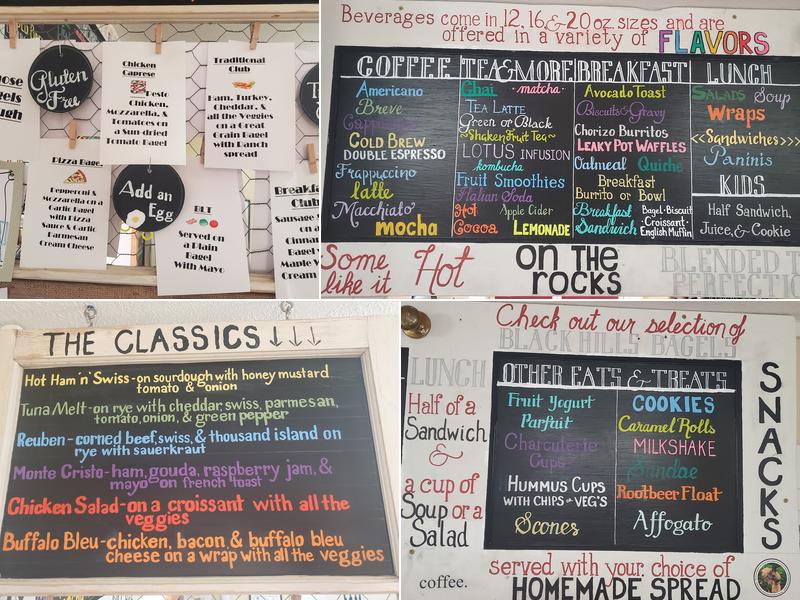 Gluten
Free
Chicken
Caprese
Pesto
Chicken,
Mozzarella, &
Tomatoes on
a Sun-dried
Tomato
Bagel
Traditional
Club
Ham, Turkey,
Cheddar, &
all the Veggies
on a Great
Grain Bagel
with Ranch
spread
Pizza Bagel
Pepperoni &
Mozzarella on a
Garlic Bagel
with Pizza
Sauce & Garlic
Parmesan
Cream Cheese
Add an
Egg
BLT
Served on
a Plain
Bagel
With Mayo
Beverages come in 12, 16, & 20 oz. sizes and are
offered in a variety of FLAVORS
COFFEE
Americano
Breve
COLD BREW
DOUBLE ESPRESSO
Frappuccino
latte
Macchiato
mocha
TEA & MORE
Chai matcha
TEA LATTE
Green or Black
~Shaken Fruit Tea~
LOTUS INFUSION
kombucha
Fruit Smoothies
Italian Soda
Hot Apple Cider
Cocoa LEMONADE
BREAKFAST
Avocado Toast
Biscuits & Gravy
Chorizo Burritos
LEAKY POT WAFFLES
Oatmeal Quiche
Breakfast
Burrito or Bowl
Breakfast Bagel·Biscuit
Sandwich ·Croissant·
English Muffin
LUNCH
Salads Soup
Wraps
<<Sandwiches>>>
Paninis
KIDS
Half Sandwich,
Juice, & Cookie
Some
like it Hot
ON THE
ROCKS
BLENDED T
PERFECTIO
THE CLASSICS ↓↓↓
Hot Ham 'n' Swiss - on sourdough with honey mustard
tomato & onion
Tuna Melt - on rye with cheddar, swiss, parmesan,
tomato, onion, & green pepper
Reuben - corned beef, swiss, & thousand island on
rye with sauerkraut
Monte Cristo - ham, gouda, raspberry jam, &
mayo on french toast
Chicken Salad - on a croissant with all the
veggies
Buffalo Bleu - chicken, bacon & buffalo bleu
cheese on a wrap with all the veggies
Check out our selection of
BLACK HILLS BAGELS
LUNCH
Half of a
Sandwich
&
a cup of
Soup or a
Salad
OTHER EATS & TREATS
Fruit Yogurt
Parfait
Charcuterie
Cups
HUMMUS CUPS
WITH CHIPS or VEG'S
Scones
COOKIES
Caramel Rolls
MILKSHAKE
Sundae
Rootbeer Float
Affogato
SNACKS
served with your choice of
HOMEMADE SPREAD
coffee.